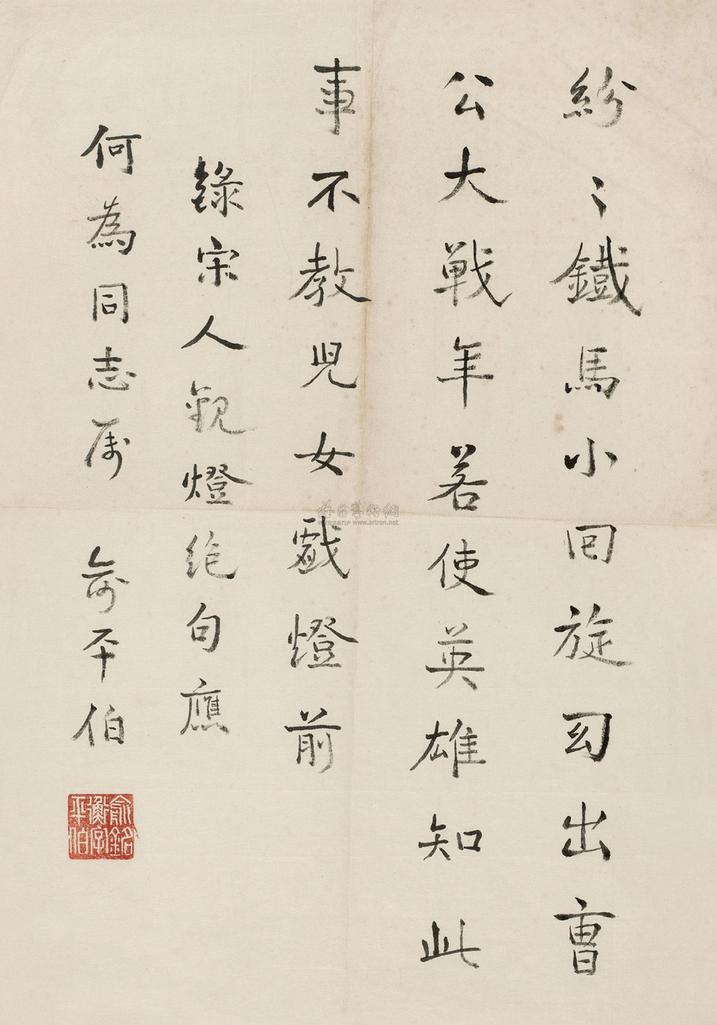 紛〻鐵馬小回旋幻出曹
公大戰年若使英雄知此
事不教兒女戲燈前
錄宋人觀燈絕句應
何為同志属 俞平伯
俞銘衡字平伯
www.artron.net